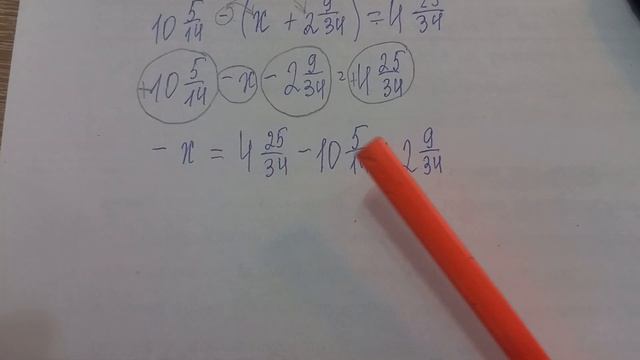 10 5/14 - (x + 2 9/34) = 4 25/34
+10 5/14 - x - 2 9/34 = +4 25/34
- x = 4 25/34 - 10 5/14 2 9/34